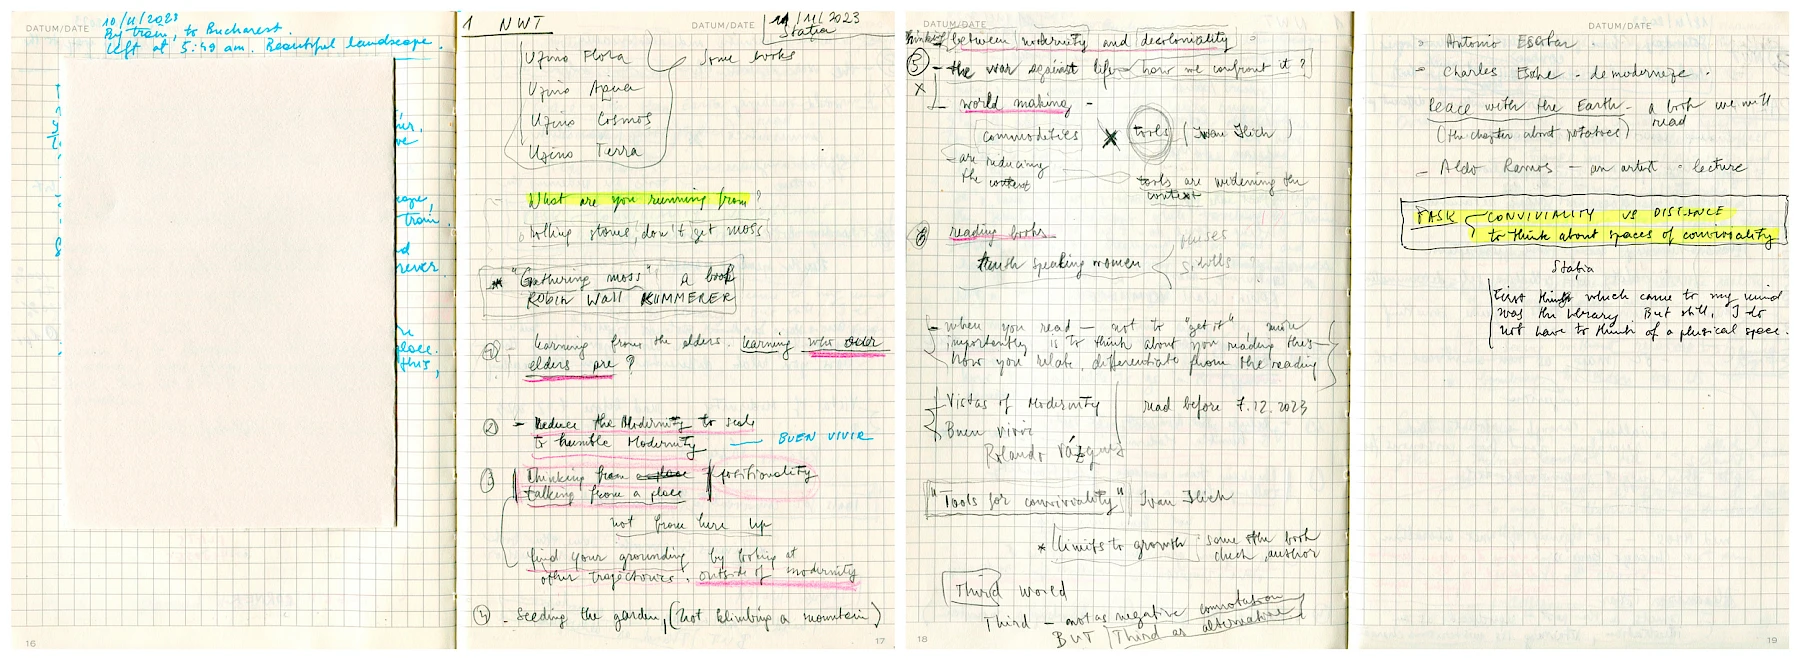 DATUM/DATE
10/11/2023
By train, to Bucharest.
left at 5:49 am. Beautiful landscape.
16
1 NWT
DATUM/DATE
11/11/2023
Stația
Uzina Flora
Uzina Apina
Uzina Cosmos
Uzina Terra
Some books
What are you running from?
Rolling stones, don't get moss
* "Gathering moss" a book
ROBIN WALL KIMMERER
1 - learning from the elders. learning who our
elders are?
2 - Reduce the Modernity to scale
to humble Modernity — BUEN VIVIR
3 Thinking from a place positionality
talking from a place
not from here up
find your grounding by looking at
other trajectories, outside of modernity
4 - Seeding the garden, (not climbing a mountain)
17
DATUM/DATE
thinking between modernity and decoloniality
5 - the war against life - how we confront it?
x
world making -
commodities x tools (Ivan Ilich)
- are reducing
the context
tools are widening the
context
6 reading books
truth speaking women
muses
sibills
- when you read - not to "get it", more
importantly is to think about you reading this -
how you relate, differentiate from the reading
Vistas of Modernity
Buen vivir
Rolando Vázquez
read before 7.12.2023
"Tools for conviviality" Ivan Ilich
* Limits to growth; some other book
check author
Third world
Third - not as negative connotation
BUT Third as alternative
18
DATUM/DATE
- Antonio Escobar
- Charles Esche - demodernize.
Peace with the Earth - a book we will
read
(the chapter about potatoes)
- Aldo Ramos - an artist - lecture
TASK CONVIVIALITY VS DISTANCE
to think about spaces of conviviality
Stația
First things which came to my mind
was the library. But still, I do
not have to think of a physical space.
19